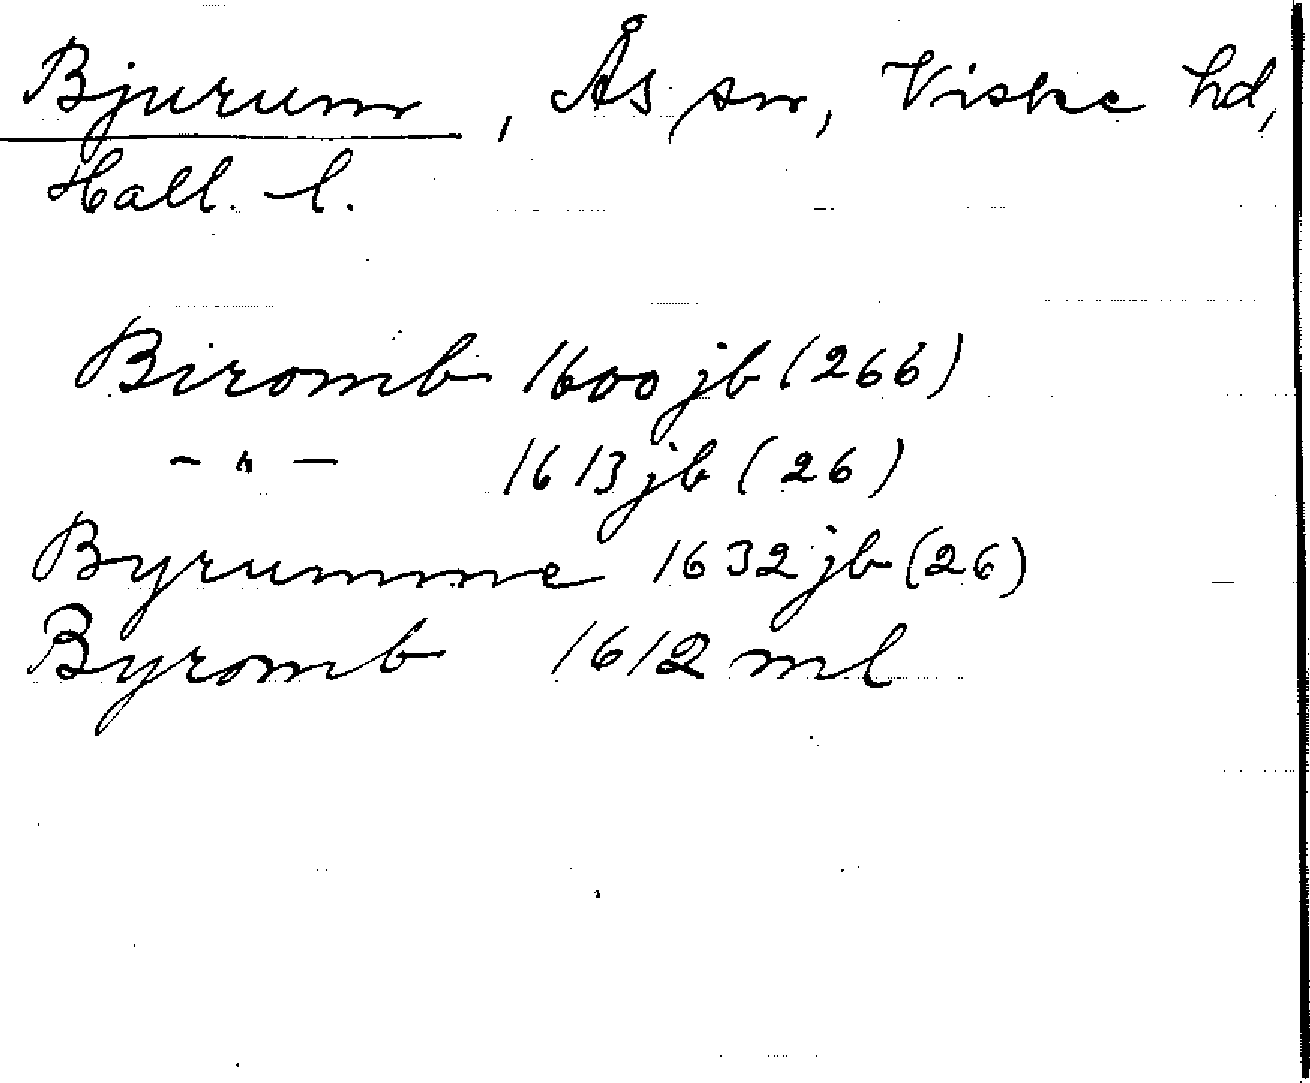 Bjurum, Ås sn, Viske hd,
Hall. l.
Biromb 1600 jb (266)
– " – 1613 jb (26)
Byrumme 1632 jb (26)
Byromb 1612 ml